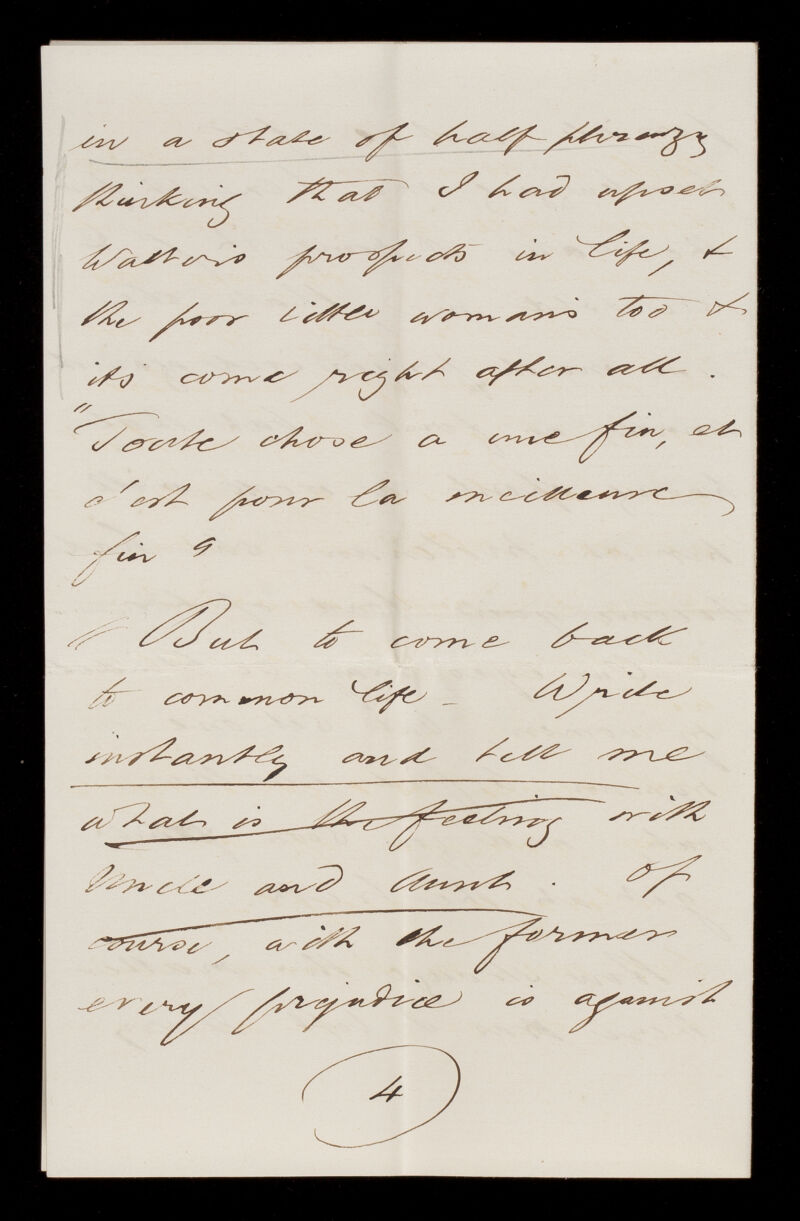 in a state of half phrenzy
thinking that I had upset
Walter's prospects in life, &
the poor little woman's too &
its come right after all.
"Toute chose a une fin, et
c'est pour la meilleure
fin"
" But to come back
to common life - Write
instantly and tell me
what is the feeling with
Uncle and Aunt. Of
course, with the former
every prejudice is against
4